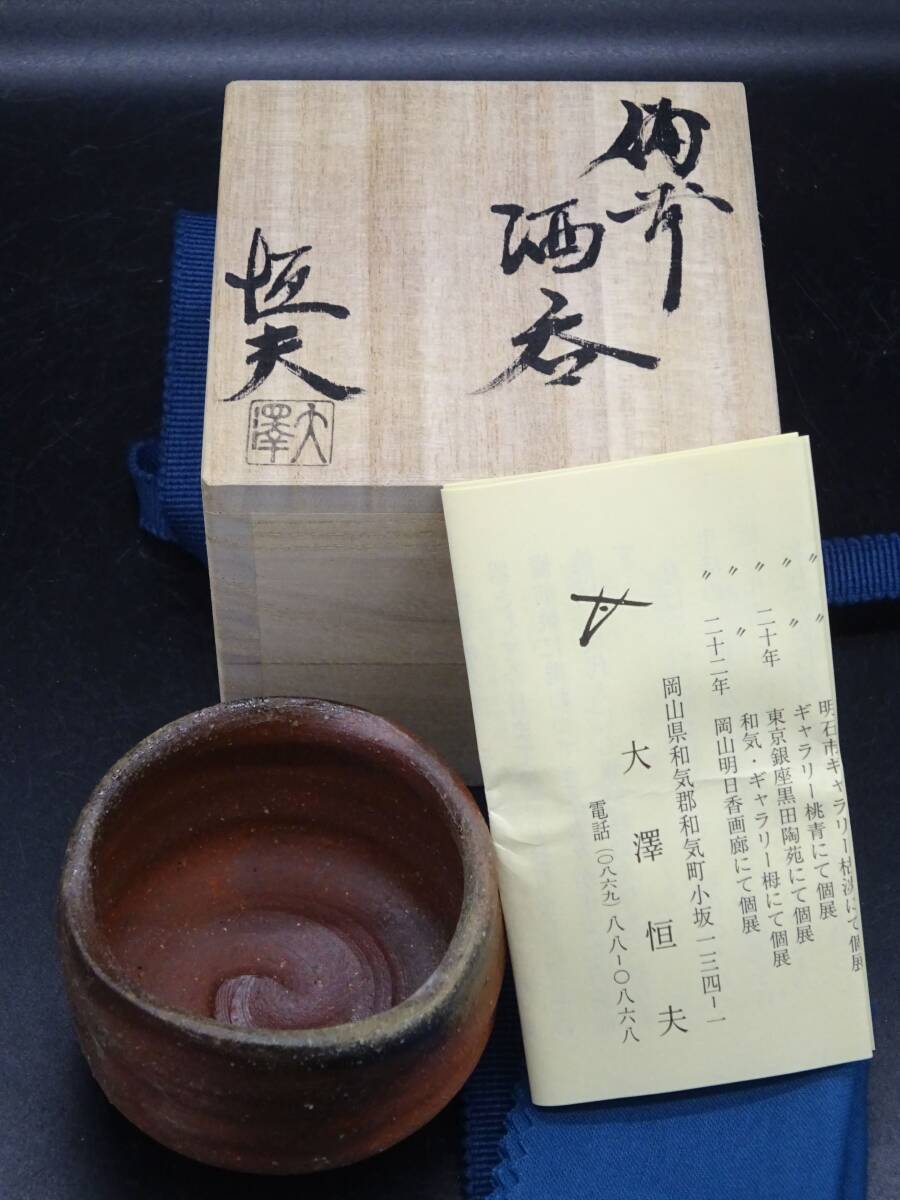 備前
酒呑
恒夫
大澤
〃 〃 明石市ギャラリー枯淡にて個展
〃 〃 ギャラリー桃青にて個展
〃 二十年 東京銀座黒田陶苑にて個展
〃 〃 和気・ギャラリー栂にて個展
〃 二十二年 岡山明日香画廊にて個展
岡山県和気郡和気町小坂一三四-一
大澤恒夫
電話(〇八六九)八八-〇八六八